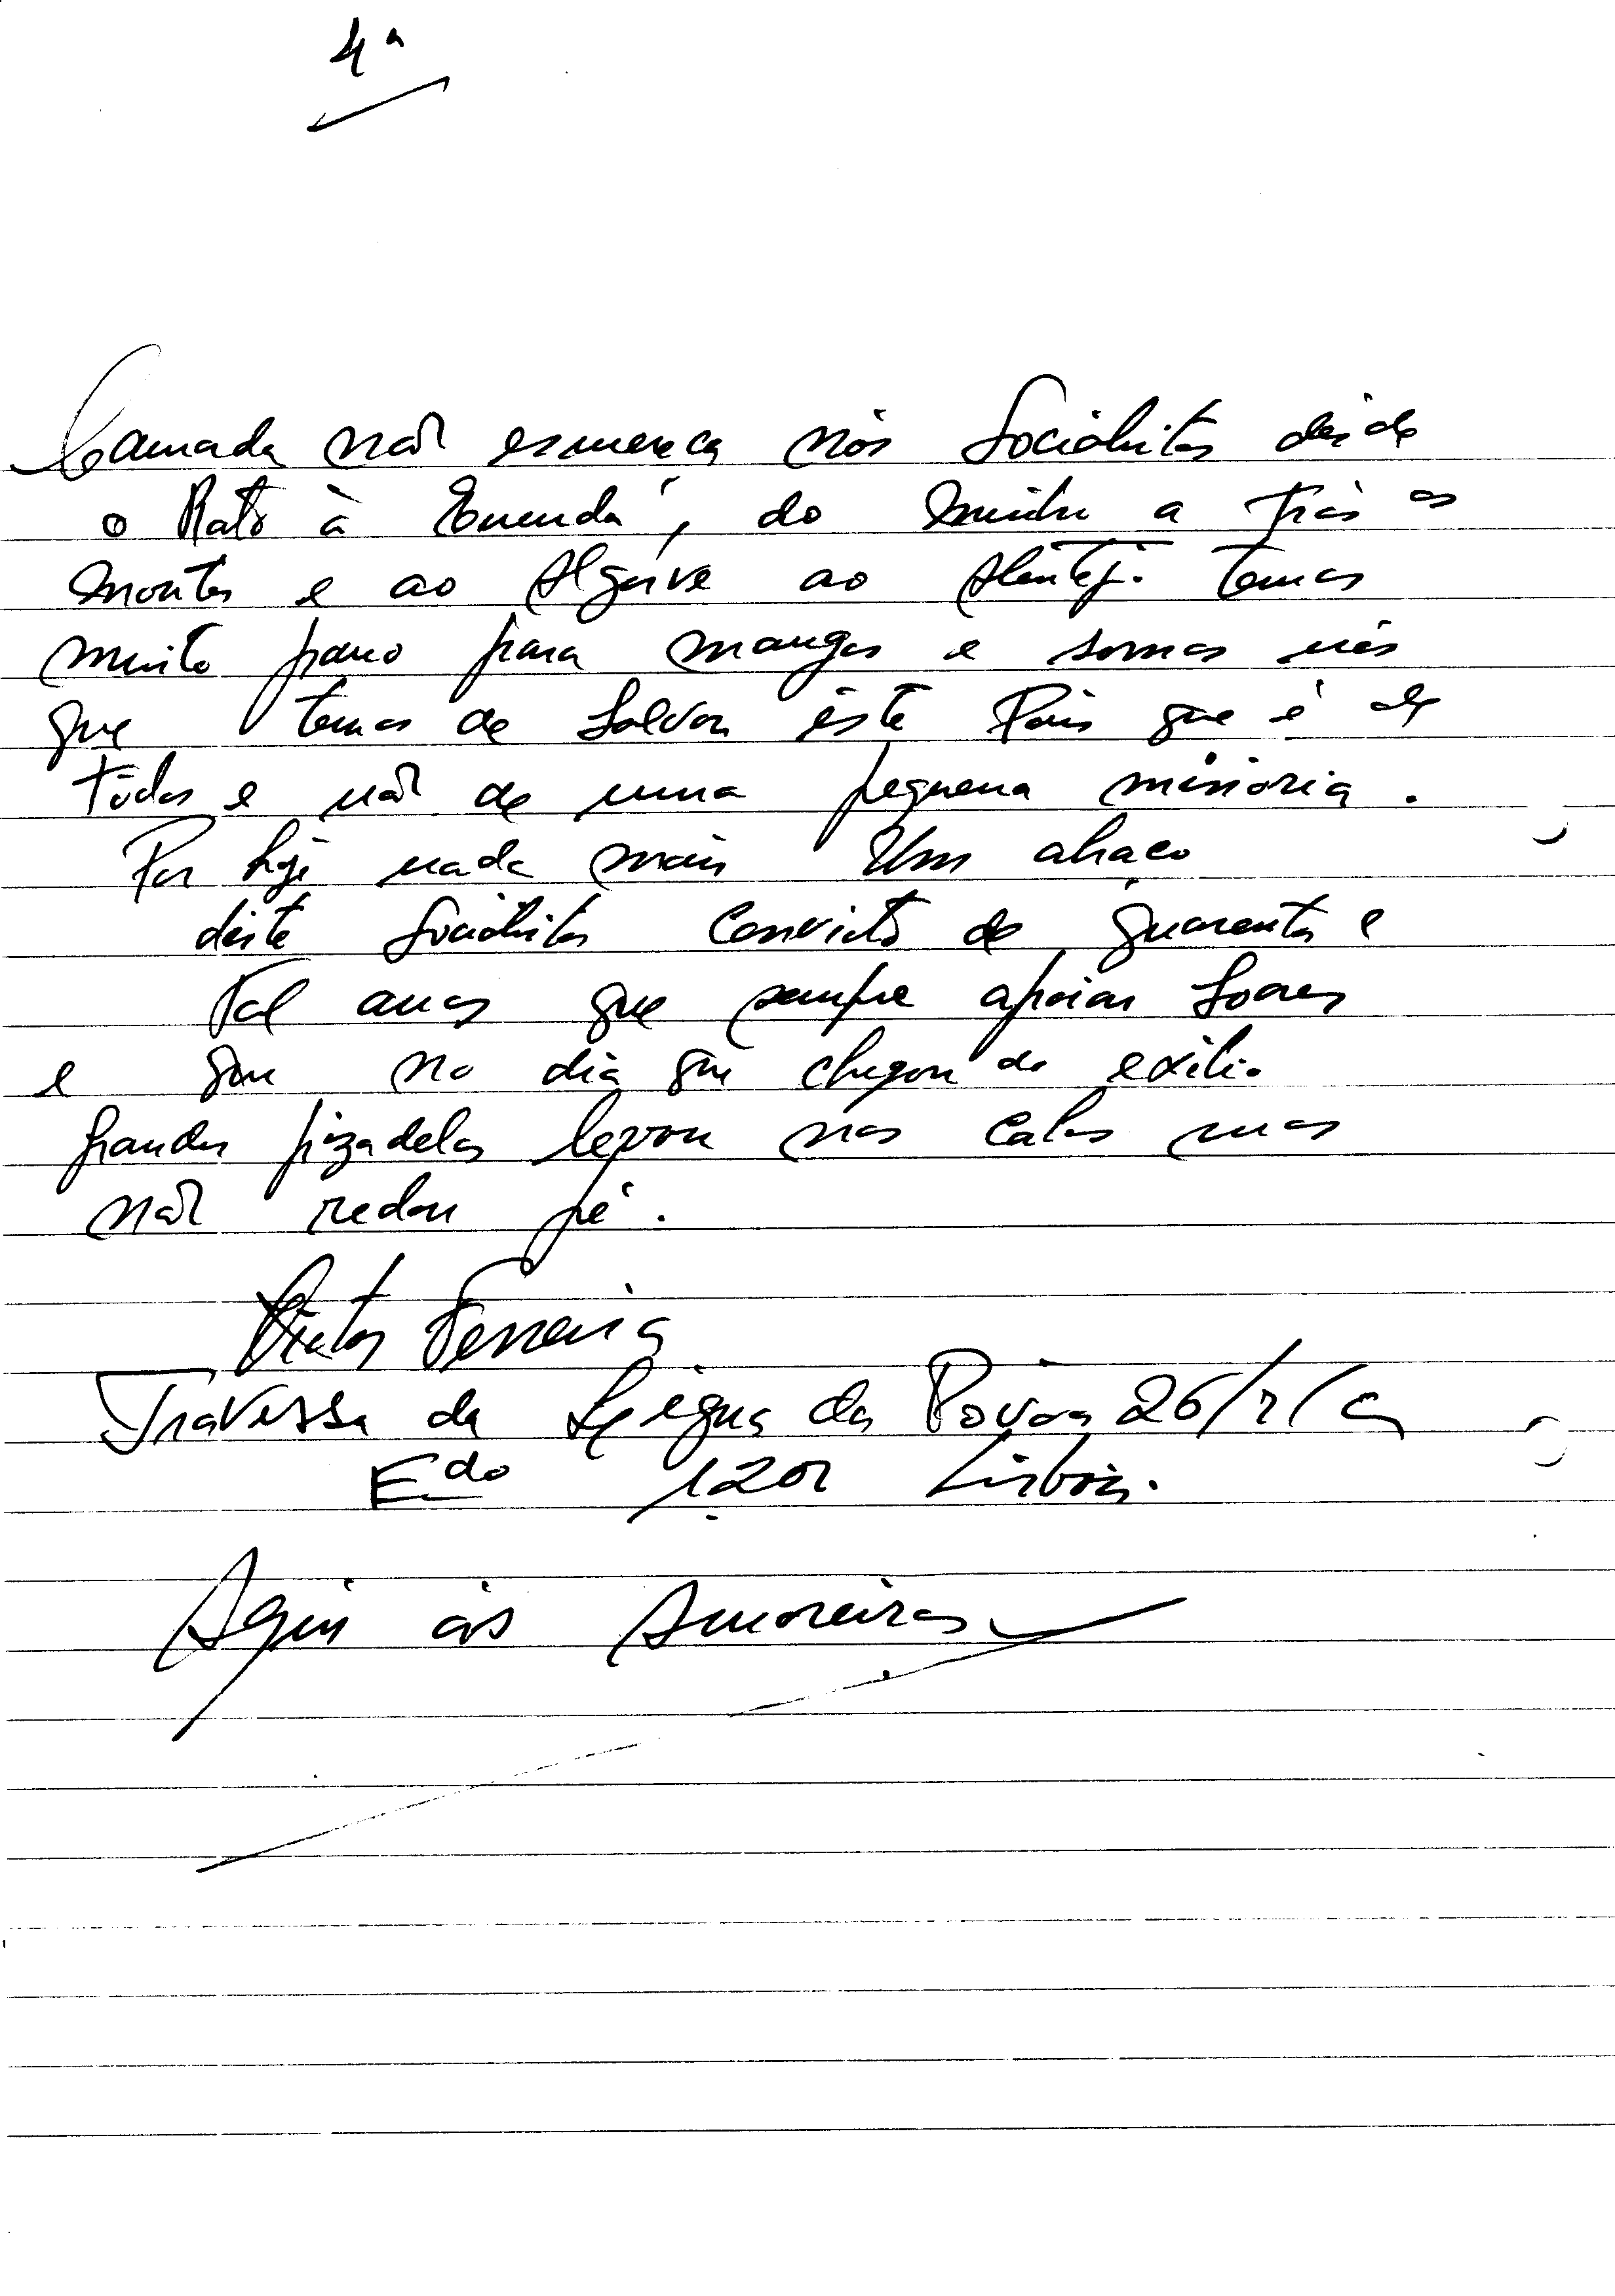 4ª
Camarada não esmoreça nós Socialistas desde
o Rato à Emenda, do Minho a Trás os
Montes e ao Algarve ao Alentejo temos
muito pano para mangas e somos nós
que temos de Salvar êste País que é de
todos e não de uma pequena minoria.
Por hoje nada mais Um abraço
dêste Socialista Convicto de quarenta e
tal anos que sempre apoiou Soares
e que no dia que chegou do exílio
grandes pizadelas levou nos calos mas
não redou pé.
Victor Ferreira
Travessa da Légua da Póvoa 26/r/c
Edo 1201 Lisboa.
Aqui às Amoreiras